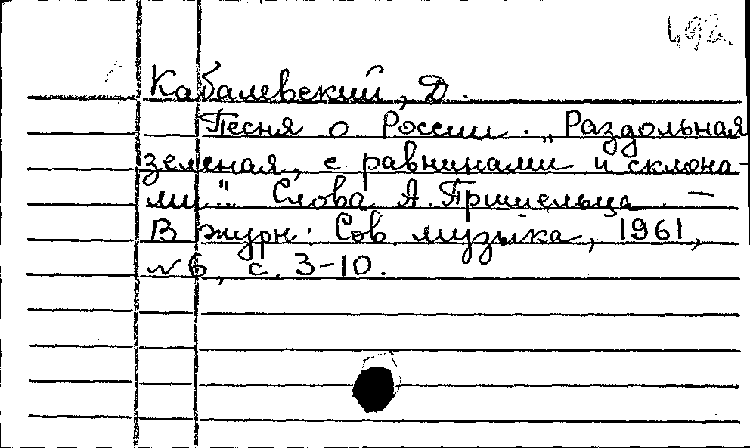 492.
Кабалевский, Д.
Песня о России. „Раздольная
зеленая, с равнинами и склона-
ми". Слова А. Пришельца. —
В журн: Сов. музыка, 1961,
№6, с. 3-10.